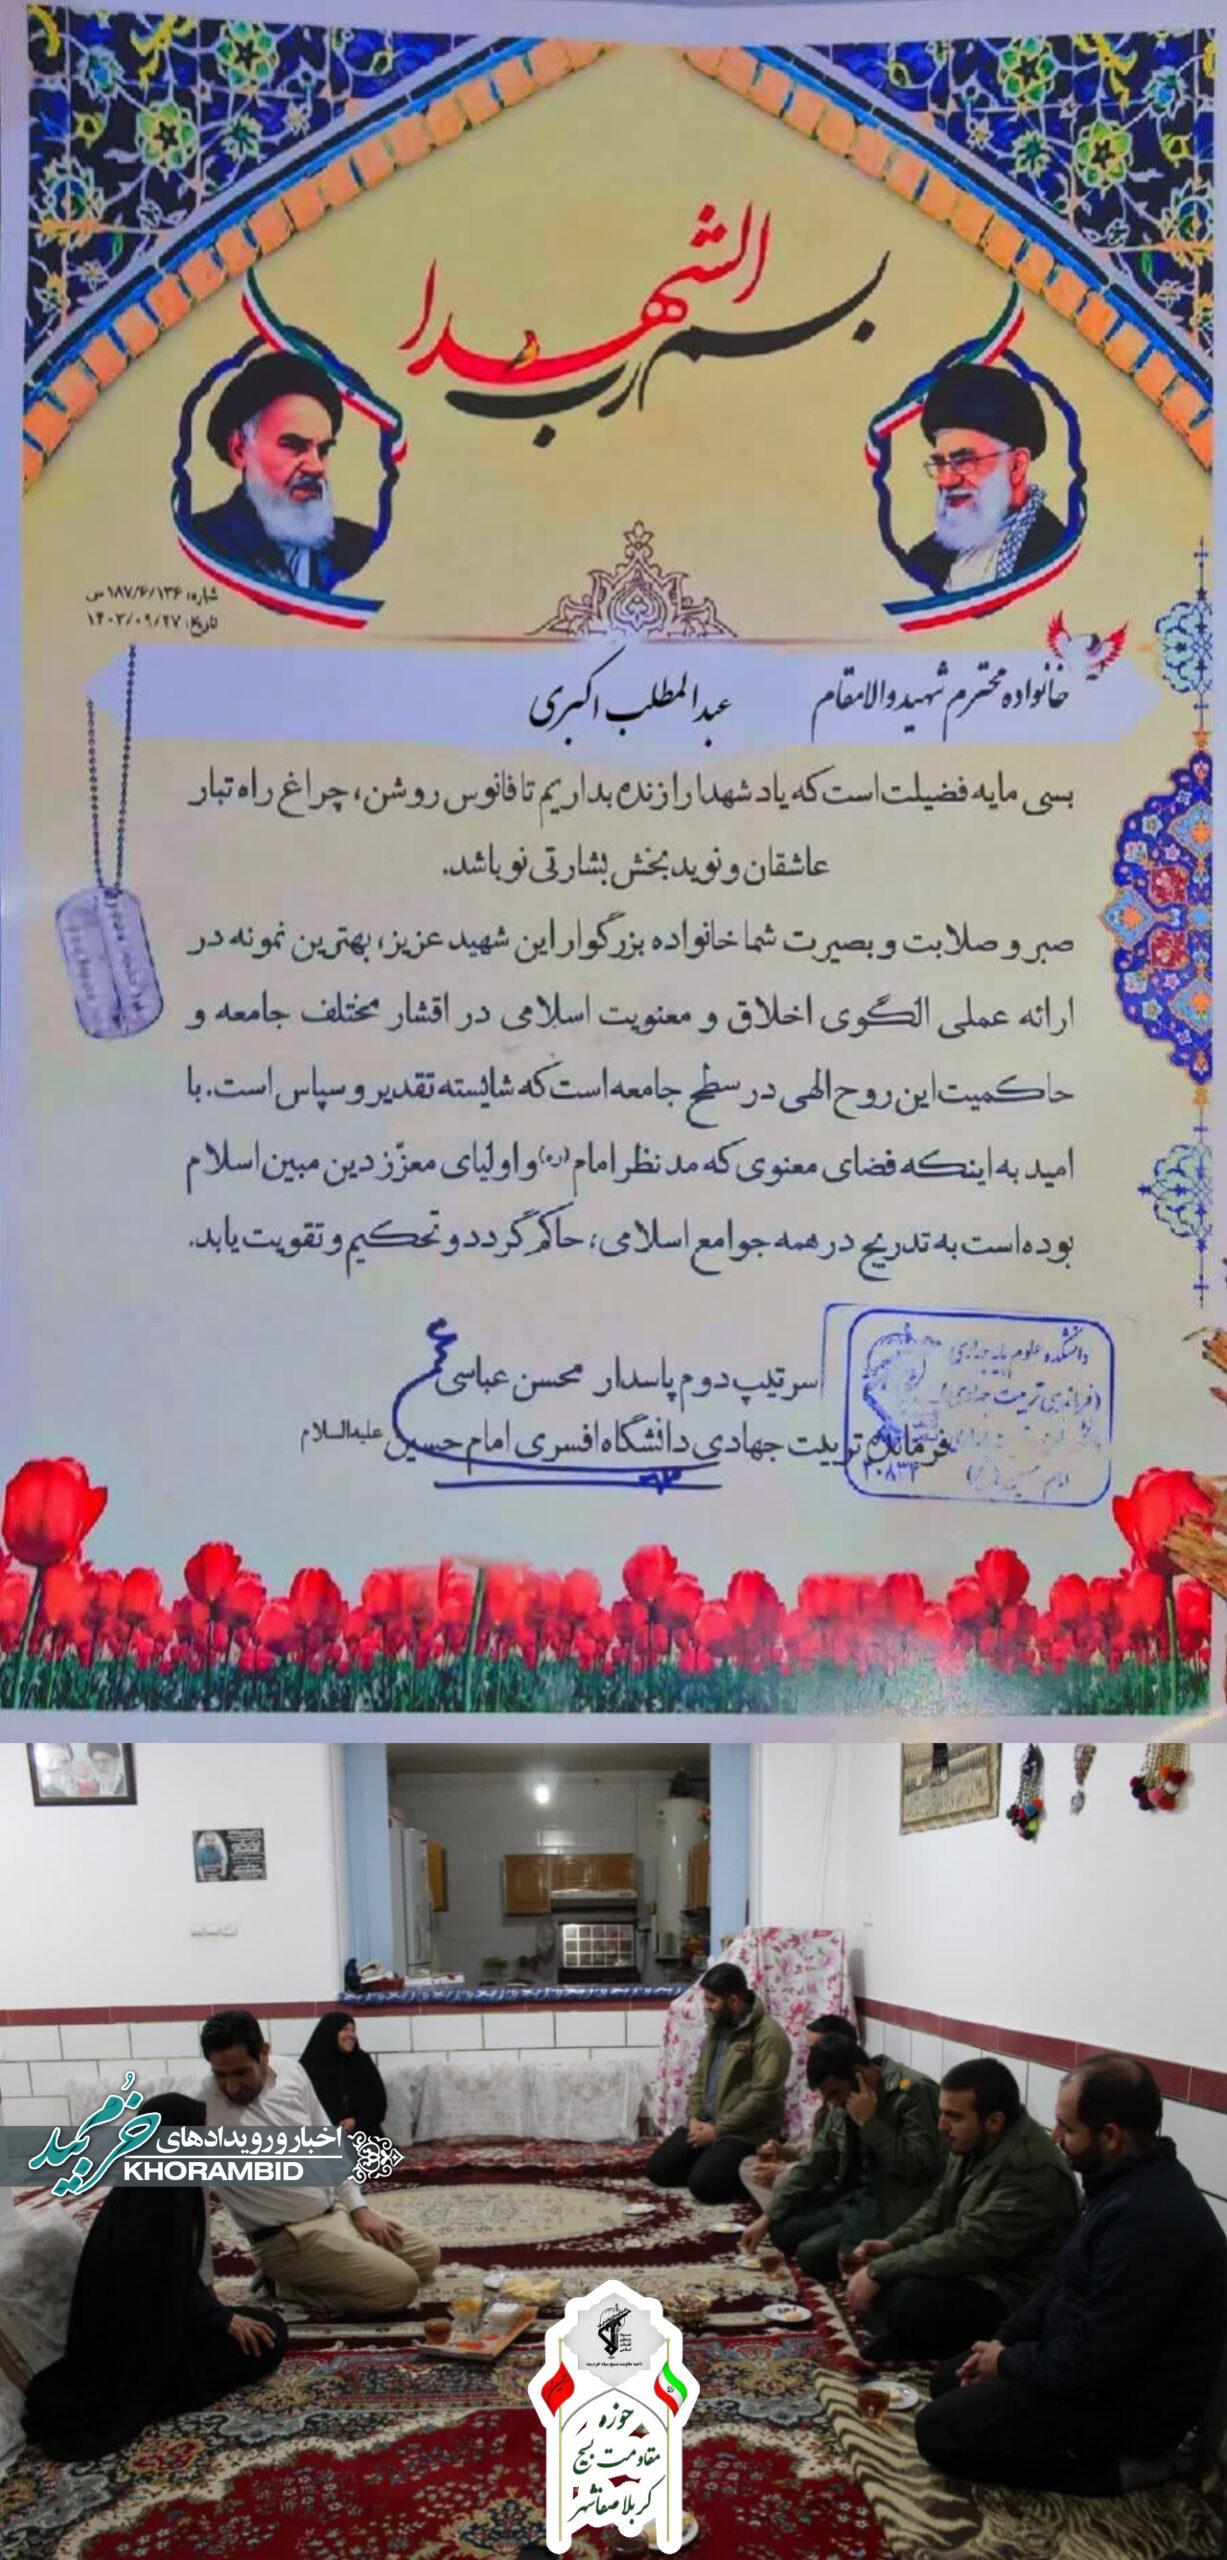 بسم رب الشهدا
شماره: ۱۸۷/۶/۱۳۶ س
تاریخ: ۱۴۰۳/۰۹/۲۷
خانواده محترم شهید والامقام عبدالمطلب اکبری
بسی مایه فضیلت است که یاد شهدا را زنده بداریم تا فانوس روشن، چراغ راه تبار
عاشقان و نوید بخش بشارتی نو باشد.
صبر و صلابت و بصیرت شما خانواده بزرگوار این شهید عزیز، بهترین نمونه در
ارائه عملی الگوی اخلاق و معنویت اسلامی در اقشار مختلف جامعه و
حاکمیت این روح الهی در سطح جامعه است که شایسته تقدیر و سپاس است. با
امید به اینکه فضای معنوی که مد نظر امام (ره) و اولیای معزّز دین مبین اسلام
بوده است به تدریج در همه جوامع اسلامی، حاکم گردد و تحکیم و تقویت یابد.
سرتیپ دوم پاسدار محسن عباسی
فرمانده تربیت جهادی دانشگاه افسری امام حسین علیه‌السلام
دانشکده علوم پایه جهادی
(فرماندهی تربیت جهادی)
امام حسین (ع)
۲۰۸۳۴
اخبار و رویدادهای
خرمبید
KHORAMBID
حوزه
مقاومت بسیج
کربلا صفاشهر